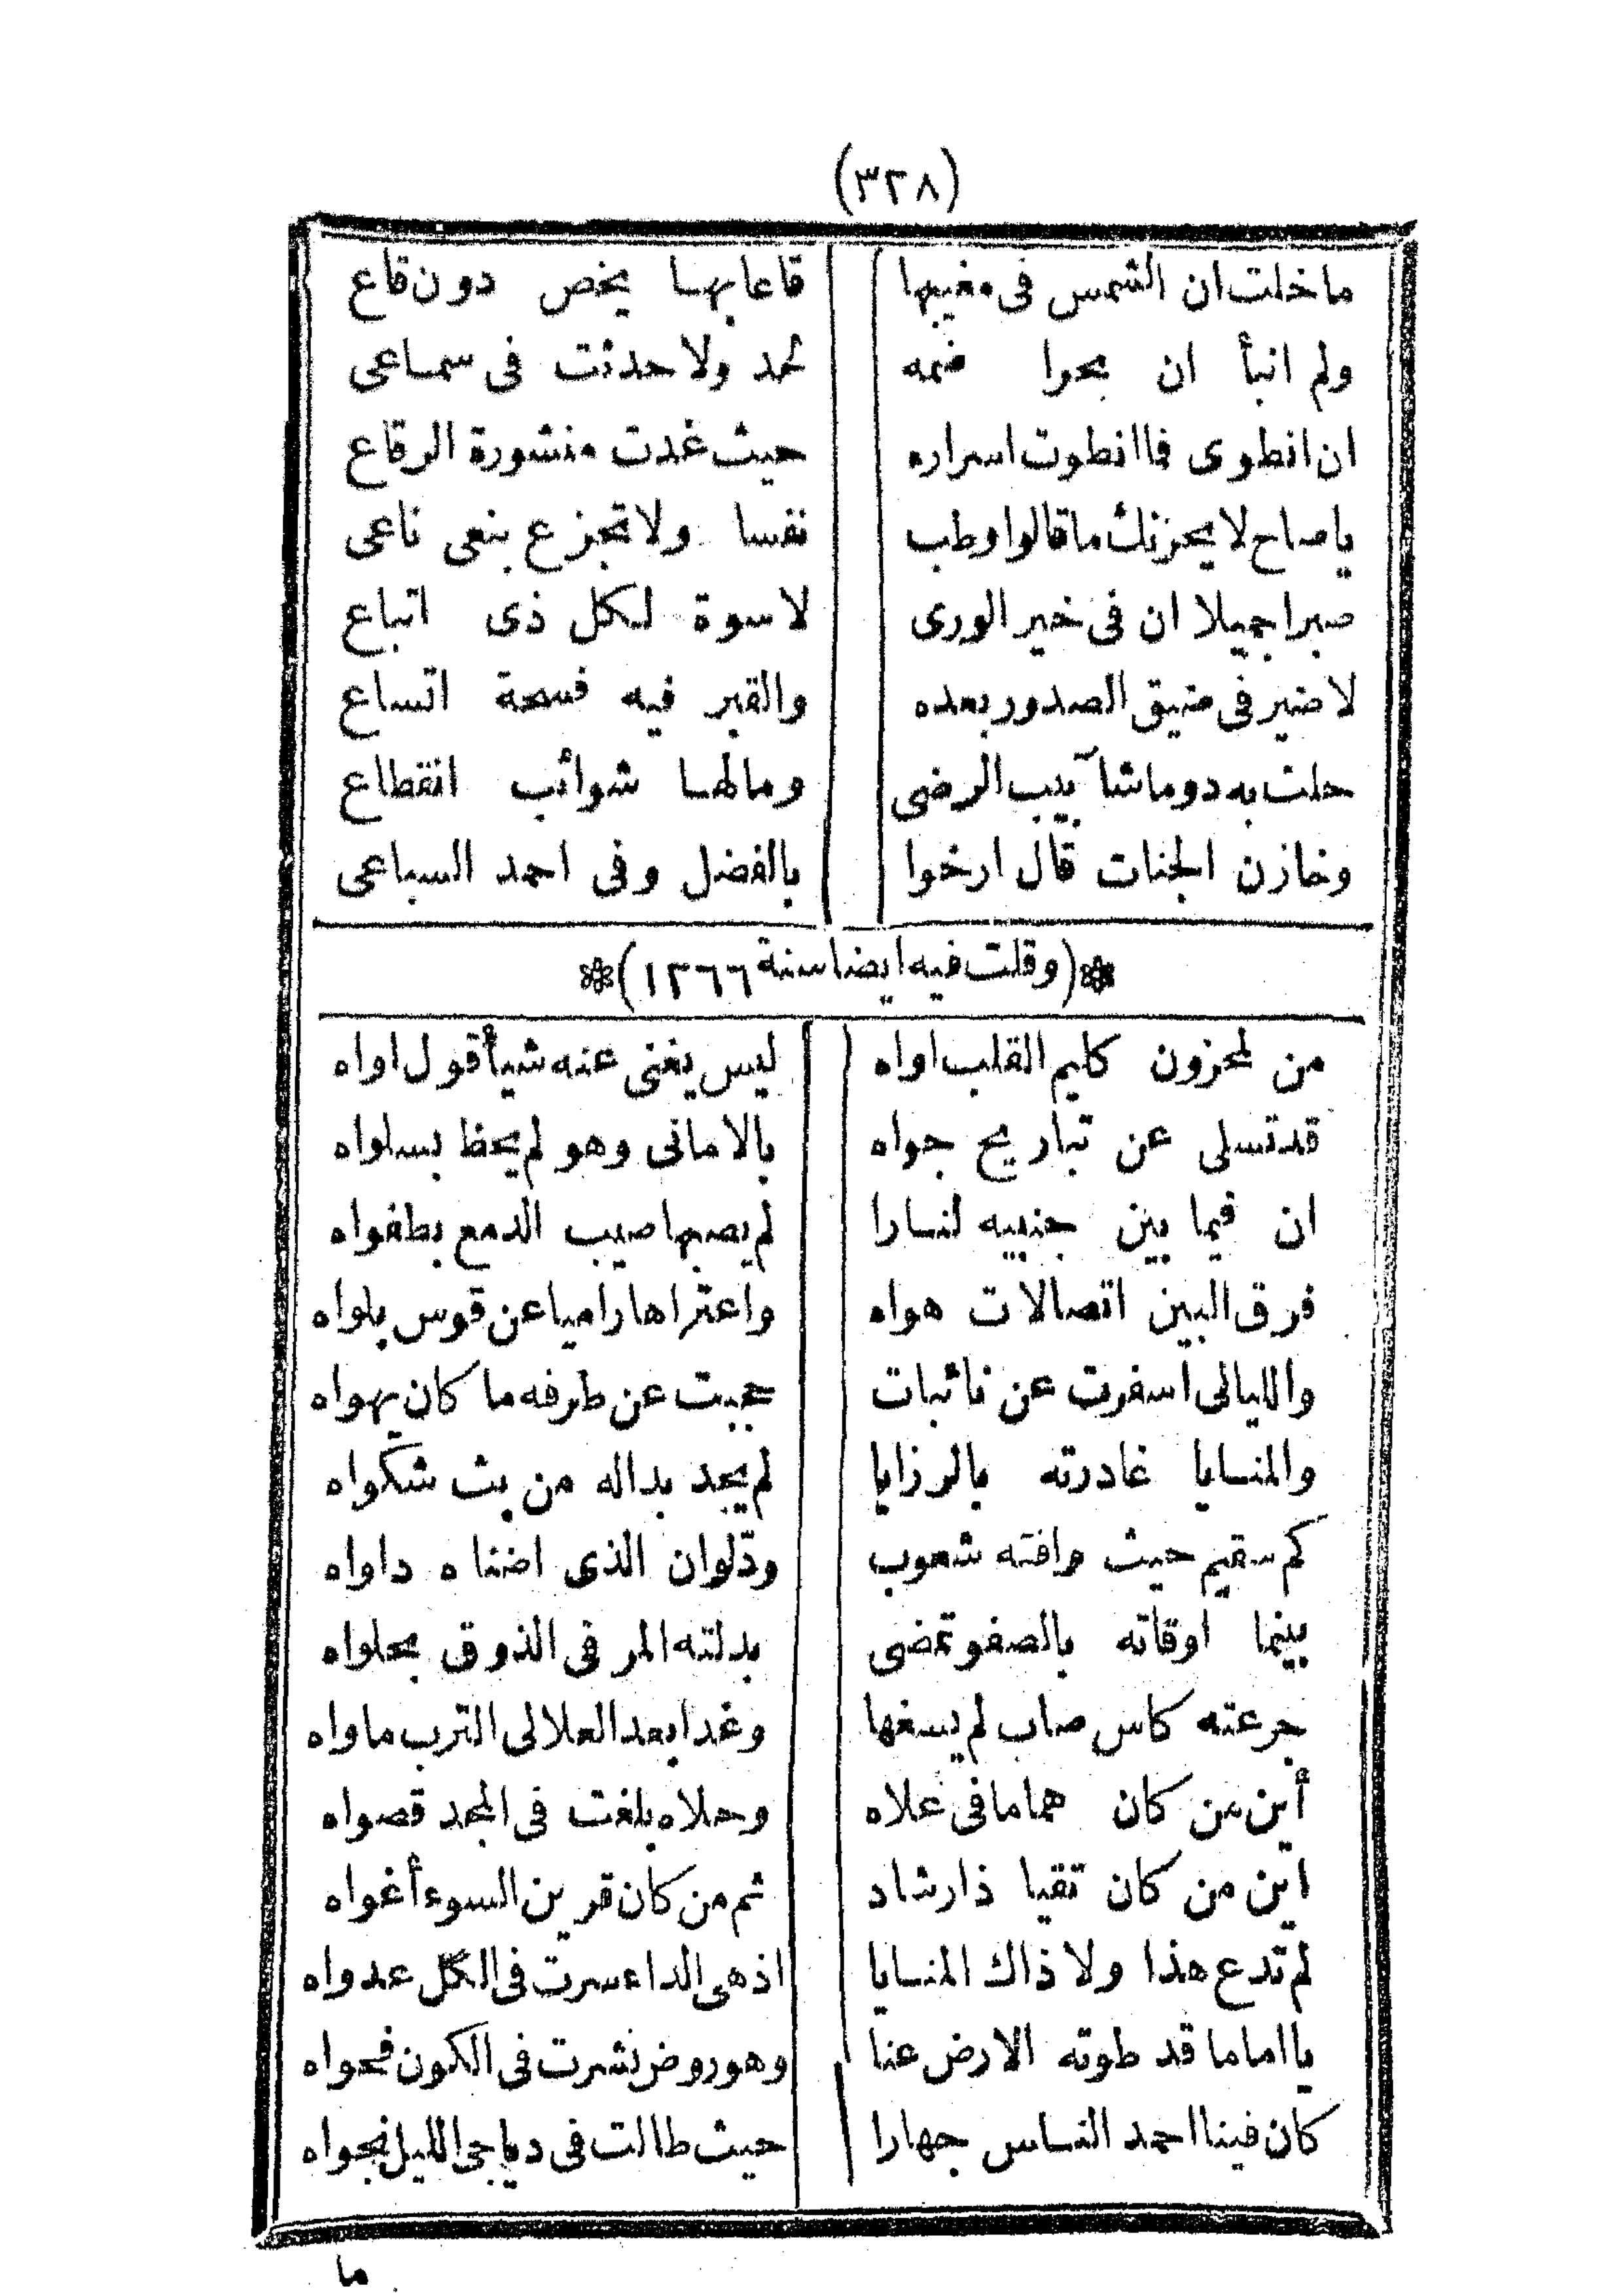 (٣٢٨)
ما خلت ان الشمس فى مغيبها قاعا بها يخص دون قاع
ولم انبأ ان بحرا ضمه لحد ولا حدثت فى سماعى
ان انطوى فما انطوت اسراره حيث غدت منشورة الرقاع
ياصاح لا يحزنك ما قالوا وطب نفسا ولا تجزع بنعى ناعى
صبرا جميلا ان فى خير الورى لاسوة لكل ذى اتباع
لا ضير فى ضيق الصدور بعده والقبر فيه فسحة اتساع
حلت به دوما شآبيب الرضى وما لها شوائب انقطاع
وخازن الجنات قال ارخوا بالفضل وفى احمد السباعى
❊(وقلت فيه ايضا سنة ١٢٦٦)❊
من لمحزون كليم القلب اواه ليس يغنى عنه شيأ قول اواه
قد تسلى عن تباريح جواه بالامانى وهو لم يحظ بسلواه
ان فيما بين جنبيه لنارا لم يصبها صيب الدمع بطفواه
فرق البين اتصالات هواه واعتراها راميا عن قوس بلواه
والليالى اسفرت عن نائبات حجبت عن طرفه ما كان يهواه
والمنايا غادرته بالرزايا لم يجد بدا له من بث شكواه
كم سقيم حيث وافته شعوب ودّ لو ان الذى اضناه داواه
بينما اوقاته بالصفو تمضى بدلته المر فى الذوق بحلواه
جرعته كاس صاب لم يسغها وغدا بعد العلا لى الترب ماواه
أين من كان هماما فى علاه وحلاه بلغت فى المجد قصواه
اين من كان تقيا ذا رشاد ثم من كان قرين السوء أغواه
لم تدع هذا ولا ذاك المنايا اذ هى الداء سرت فى الكل عدواه
يا اماما قد طوته الارض عنا وهو روض نشرت فى الكون فحواه
كان فينا احمد الناس جهارا حيث طالت فى دياجى الليل نجواه
ما